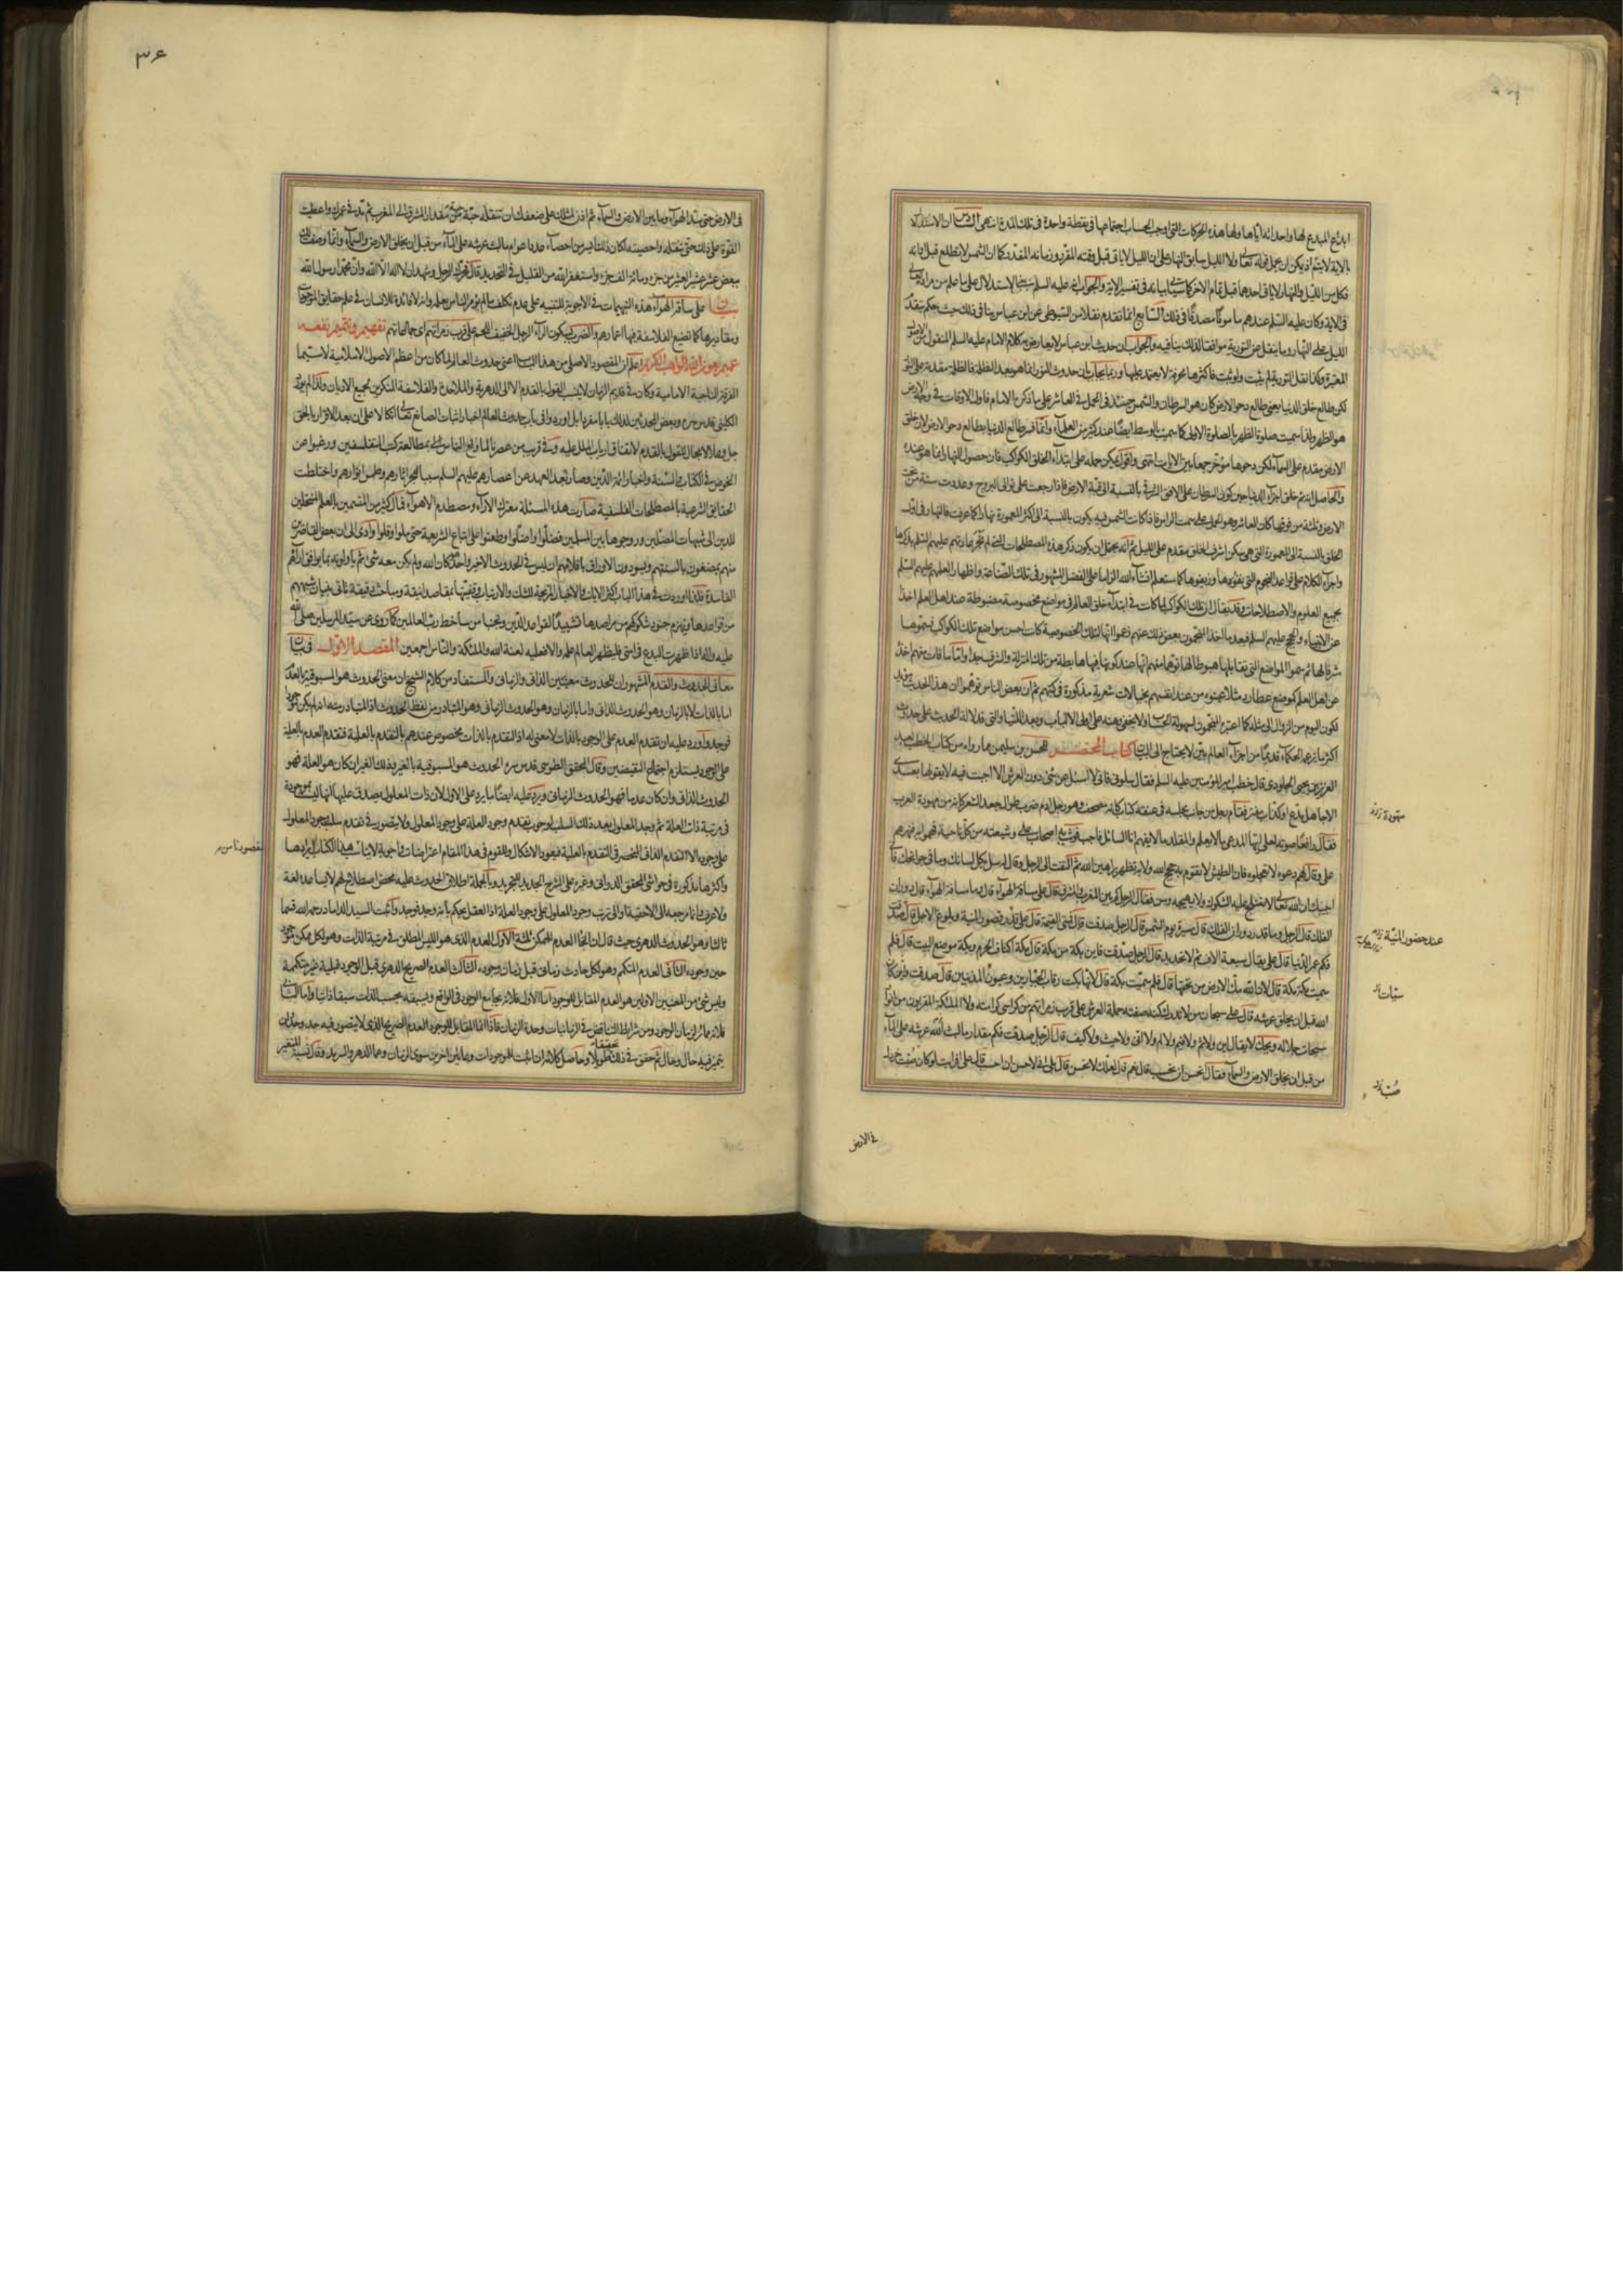 ابداع المبدع لها واحداثه اياها ولها هذه الحركات التى اوجب الحساب اجتماعها فى نقطة واحدة فى تلك المدة انتهى السادس ان الاستدلال
بالاية لا يتم اذ يمكن ان يحمل قوله تعالى ولا الليل سابق النهار على ان الليل لا ياتى قبل وقته المقرر وزمانه المقدر كما ان الشمس لا تطلع قبل اوانه
فكل من الليل والنهار لا ياتى احدهما قبل تمام الاخر كما سيأتى بيانه فى تفسير الاية والجواب انه عليه السلم
فى الاية وكان عليه السلم عندهم مامونا مصدقا فى ذلك السابع ان ما تقدم نقلا من السيوطى عن ابن عباس ينافى ذلك حيث حكم بتقدم
الليل على النهار وما ينقل عن التورية موافقا لذلك ينافيه والجواب ان حديث ابن عباس لا يعارض به كلام الامام عليه السلم المنقول من الاصول
المعتبرة وكذا نقل التورية لم يثبت ولو ثبت فاكثرها محرفة لا يعتمد عليها وربما يجاب بان حدوث النور انما هو بعد الظلمة فالظلمة مقدمة على النور
لكن طالع خلق الدنيا يعنى طالع دحو الارض كان هو السرطان والشمس حينئذ فى الحمل فى العاشر على ما ذكره الامام فاول الاوقات فى دحو الارض
هو الظهر ولذا سميت صلوة الظهر بالصلوة الاولى كما سميت بالوسطى ايضا عند كثير من العلماء وانما فسر طالع الدنيا بطالع دحو الارض لان خلق
الارض مقدم على السماء لكن دحوها مؤخر جمعا بين الايات انتهى واقول يمكن حمله على ابتداء خلق الكواكب فان حصول النهار انما هو عنده
والحاصل انه تم خلق اجزاء الدنيا حين كون السرطان على الافق الشرقى بالنسبة الى قبة الارض
الارض وثلثة من فوقها كان العاشر وهو الحمل على سمت الراس فاذا كانت الشمس فيه يكون بالنسبة الى اكثر المعمورة نهارا كما عرفت فالنهار فى اول
الخلق بالنسبة الى المعمورة التى هى مسكن اشرف الخلق مقدم على الليل ثم انه يحتمل ان يكون ذكر هذه المصطلحات التى لم تجر عادتهم عليهم السلم بذكرها
واجراء الكلام على قواعد النجوم التى نفوها وزيفوها كما ستعلم ان شاء الله الزاما على الفضل المشهور فى تلك الصناعة واظهارا لعلمهم عليهم السلم
بجميع العلوم والاصطلاحات وقد يقال ان تلك الكواكب لما كانت فى ابتداء خلق العالم فى مواضع مخصوصة مضبوطة عند اهل العلم اخذا
عن الانبياء والحجج عليهم السلم فبعد ما اخذ المنجمون بعض ذلك عنهم زعموا انها لتلك الخصوصية كانت احسن مواضع تلك الكواكب فسموها
شرفا لها ثم سموا المواضع التى تقابلها هبوطا لها توهما منهم انها عند كونها فيها هابطة من تلك المنزلة والشرف جدا واما ما فات منهم اخذه
عن اهل العلم كموضع عطارد مثلا عينوه من عند انفسهم بخيالات شعرية مذكورة فى كتبهم ثم ان بعض الناس توهموا ان هذا الحديث
فكون اليوم من الزوال الى مثله كما اعتبره المنجمون لسهولة الحساب ولا يخفى وهنه على اولى الالباب
اكثر ما زعم الحكماء قدمه من اجزاء العالم لا يحتاج الى البيان كتاب المحتضر للحسن بن سليمن مما رواه من كتاب الخطب لعبد
العزيز بن يحيى الجلودى قال خطب امير المؤمنين عليه السلم فقال سلونى فانى لا اسئل عن شىء دون العرش الا اجبت فيه لا يقولها بعدى
الا جاهل مدع او كذاب مفتر فقام رجل من جانب مجلسه فى عنقه كتاب كانه مصحف وهو رجل ادم ضرب طوال جعد الشعر كانه من مهودة العرب
فقال رافعا صوته لعلى ايها المدعى ما لا يعلم والمقلد ما لا يفهم انا السائل فاجب فوثب اصحاب على وشيعته من كل ناحية فهموا به فنهرهم
على وقال لهم دعوه لا تعجلوه فان الطيش لا تقوم به حجج الله ولا به تظهر براهين الله ثم التفت الى الرجل وقال له سل بكل لسانك وما فى جوانحك فانى
اجيبك ان الله تعالى لا تعتلج عليه الشكوك ولا يهيجه وسن فقال الرجل كم بين المغرب والمشرق قال على مسافة الهواء قال وما مسافة الهواء قال دوران
الفلك قال الرجل وما قدر دوران الفلك قال مسيرة يوم للشمس قال الرجل صدقت قال فمتى القيمة قال على قدر قصور المنية وبلوغ الاجل قال صدقت
فكم عمر الدنيا قال على يقال سبعة الاف ثم لا تحديد قال الرجل صدقت فاين بكة من مكة قال مكة اكناف الحرم وبكة موضع البيت قال فلم
سميت مكة مكة قال لان الله مك الارض من تحتها قال فلم سميت بكة قال لانها بكت رقاب الجبارين وعيون المذنبين قال صدقت واين كان
الله قبل ان يخلق عرشه قال على سبحان من لا تدرك كنه صفته حملة العرش على قرب زمراتهم من كراسى كرامته ولا الملئكة المقربون من انوار
سبحات جلاله ويحك لا يقال اين ولا ثم ولا فيم ولا لم ولا انى ولا حيث ولا كيف قال الرجل صدقت فكم مقدار ما لبث الله عرشه على الماء
من قبل ان يخلق الارض والسماء فقال اتحسن ان تحسب قال نعم قال لعلك لا تحسن قال بلى انى لاحسن ان احسب قال على افرايت لو كان صب خردل
عند حضور المنية
صب
فى الارض
٣٤
فى الارض حتى سد الهواء وما بين الارض والسماء ثم اذن لمثلك على ضعفك ان تنقله حبة حبة من مقدار المشرق الى المغرب ثم مد فى عمرك واعطيت
القوة على ذلك حتى تنقله واحصيته لكان ذلك ايسر من احصاء عدد اعوام ما لبث عرشه على الماء من قبل ان يخلق الارض والسماء وانما وصفت لك
ببعض عشر عشير العشير من جزء من مائة الف جزء واستغفر الله من القليل فى التحديد قال فحرك الرجل راسه وشهد ان لا اله الا الله وان محمدا رسول الله
بيان على مسافة الهواء هذه التبهيمات فى الاجوبة للتنبيه على عدم تكلف ما لم يؤمر الناس بعلمه وانه لا فائدة للانسان فى علم حقايق الموجودات
ومقاديرها كما تضيع الفلاسفة فيها اعمارهم والضرب بسكون الراء الرجل الخفيف اللحم على قرب زمراتهم اى جماعاتهم تفهيم وتتميم نفعه
عميم بعون الله الواهب الكريم اعلم ان المقصود الاصلى من هذا الباب اعنى حدوث العالم لما كان من اعظم الاصول الاسلامية لا سيما
الفرقة الناجية الامامية وكان فى قديم الزمان لا ينسب القول بالقدم الا الى الدهرية والملاحدة والفلاسفة المنكرين لجميع الاديان ولذا لم يورد
الكلينى قدس سره وبعض المحدثين لذلك بابا مفردا بل اوردوا فى باب حدوث العالم اخبار اثبات الصانع تعالى اتكالا على ان بعد الاقرار بالحق
جل وعلا لا مجال للقول بالقدم لاتفاق ارباب الملل عليه وفى قريب من عصرنا لما ولع الناس بمطالعة كتب المتفلسفين ورغبوا عن
الخوض فى الكتاب والسنة واخبار ائمة الدين وصار بعد العهد عن اعصارهم عليهم السلم سببا لهجر اثارهم وطمس انوارهم واختلطت
الحقايق الشرعية بالمصطلحات الفلسفية صارت هذه المسئلة معترك الاراء ومصطدم الاهواء فمال كثير من المتسمين بالعلم المنتحلين
للدين الى شبهات المضلين وروجوها بين المسلمين فضلوا واضلوا وطعنوا على اتباع الشريعة حتى ملوا وقلوا وادى الى ان بعض القاصرين
منهم يمضغون بالسنتهم ويسودون الاوراق باقلامهم ان ليس فى الحدوث الا خبر واحد كان الله ولم يكن معه شىء ثم ياولونه بما يوافق اراءهم
الفاسدة فلذا اوردت فى هذا الباب اكثر الايات والاخبار المزيحة للشك والارتياب وقفيتها بمقاصد انيقة ومباحث دقيقة تاتى بنيان شبههم
من قواعدها وتهزم جنود شكوكهم من مراصدها تشييدا لقواعد الدين وتجنبا من مساخط رب العالمين كما روى عن سيد المرسلين صلى الله
عليه واله اذا ظهرت البدع فى امتى فليظهر العالم علمه والا فعليه لعنة الله والملئكة والناس اجمعين المقصد الاول فى بيان
معانى الحدوث والقدم المشهور ان للحدوث معنيين الذاتى والزمانى والمستفاد من كلام الشيخ ان معنى الحدوث هو المسبوقية بالعدم
اما بالذات لا بالزمان وهو الحدوث الذاتى واما بالزمان وهو الحدوث الزمانى وهو المتبادر من لفظ الحدوث اذ المتبادر منه انه لم يكن موجودا
فوجد واورد عليه ان تقدم العدم على الوجود بالذات لا معنى له اذ التقدم بالذات مخصوص عندهم بالتقدم بالعلية فتقدم العدم بالعلية
على الوجود يستلزم اجتماع النقيضين وقال المحقق الطوسى قدس سره الحدوث هو المسبوقية بالغير وذلك الغير ان كان هو العلة فهو
الحدوث الذاتى وان كان عدما فهو الحدوث الزمانى ويرد عليه ايضا ما يرد على الاول لان ذات المعلول يصدق عليها انها ليست بموجودة
فى مرتبة ذات العلة ثم وجد المعلول بعد ذلك السلب لوجوب تقدم وجود العلة على وجود المعلول ولا يتصور فى تقدم سلب وجود المعلول
على وجوده الا التقدم الذاتى المنحصر فى التقدم بالعلية فيعود الاشكال وللقوم فى هذا المقام اعتراضات واجوبة لا يناسب هذا الكتاب ايرادها
واكثرها مذكورة فى حواشى المحقق الدوانى وغيره على الشرح الجديد للتجريد وبالجملة اطلاق الحدوث عليه محض اصطلاح لهم لا يساعده لغة
ولا عرف وانما مرجعه الى الاحتياج او الى ترتب وجود المعلول على وجود العلة اذ العقل يحكم بانه وجد فوجد واثبت السيد الداماد رحمه الله قسما
ثالثا وهو الحدوث الدهرى حيث قال ان انحاء العدم للممكن ثلثة الاول العدم الذى هو الليس المطلق فى مرتبة الذات وهو لكل ممكن موجود
حين وجوده الثانى العدم المتكمم وهو لكل حادث زمانى قبل زمان وجوده الثالث العدم الصريح الدهرى قبل الوجود قبلية غير متكممة
وليس شىء من العدمين الاولين هو العدم المقابل للوجود اما الاول فلانه يجامع الوجود فى الواقع ويسبقه بحسب الذات سبقا ذاتيا واما الثانى
فلانه ممايز لزمان الوجود ومن شرائط التناقض فى الزمانيات وحدة الزمان فاذا انما المقابل للوجود العدم الصريح الذى لا يتصور فيه حد وحد لن
يتميز فيه حال وحال ثم حقق فى ذلك تحقيقا طويلا وحاصل كلامه ان اثبت للموجودات وعائين اخرين سوى الزمان وهما الدهر والسرمد وقال نسبة المتغير